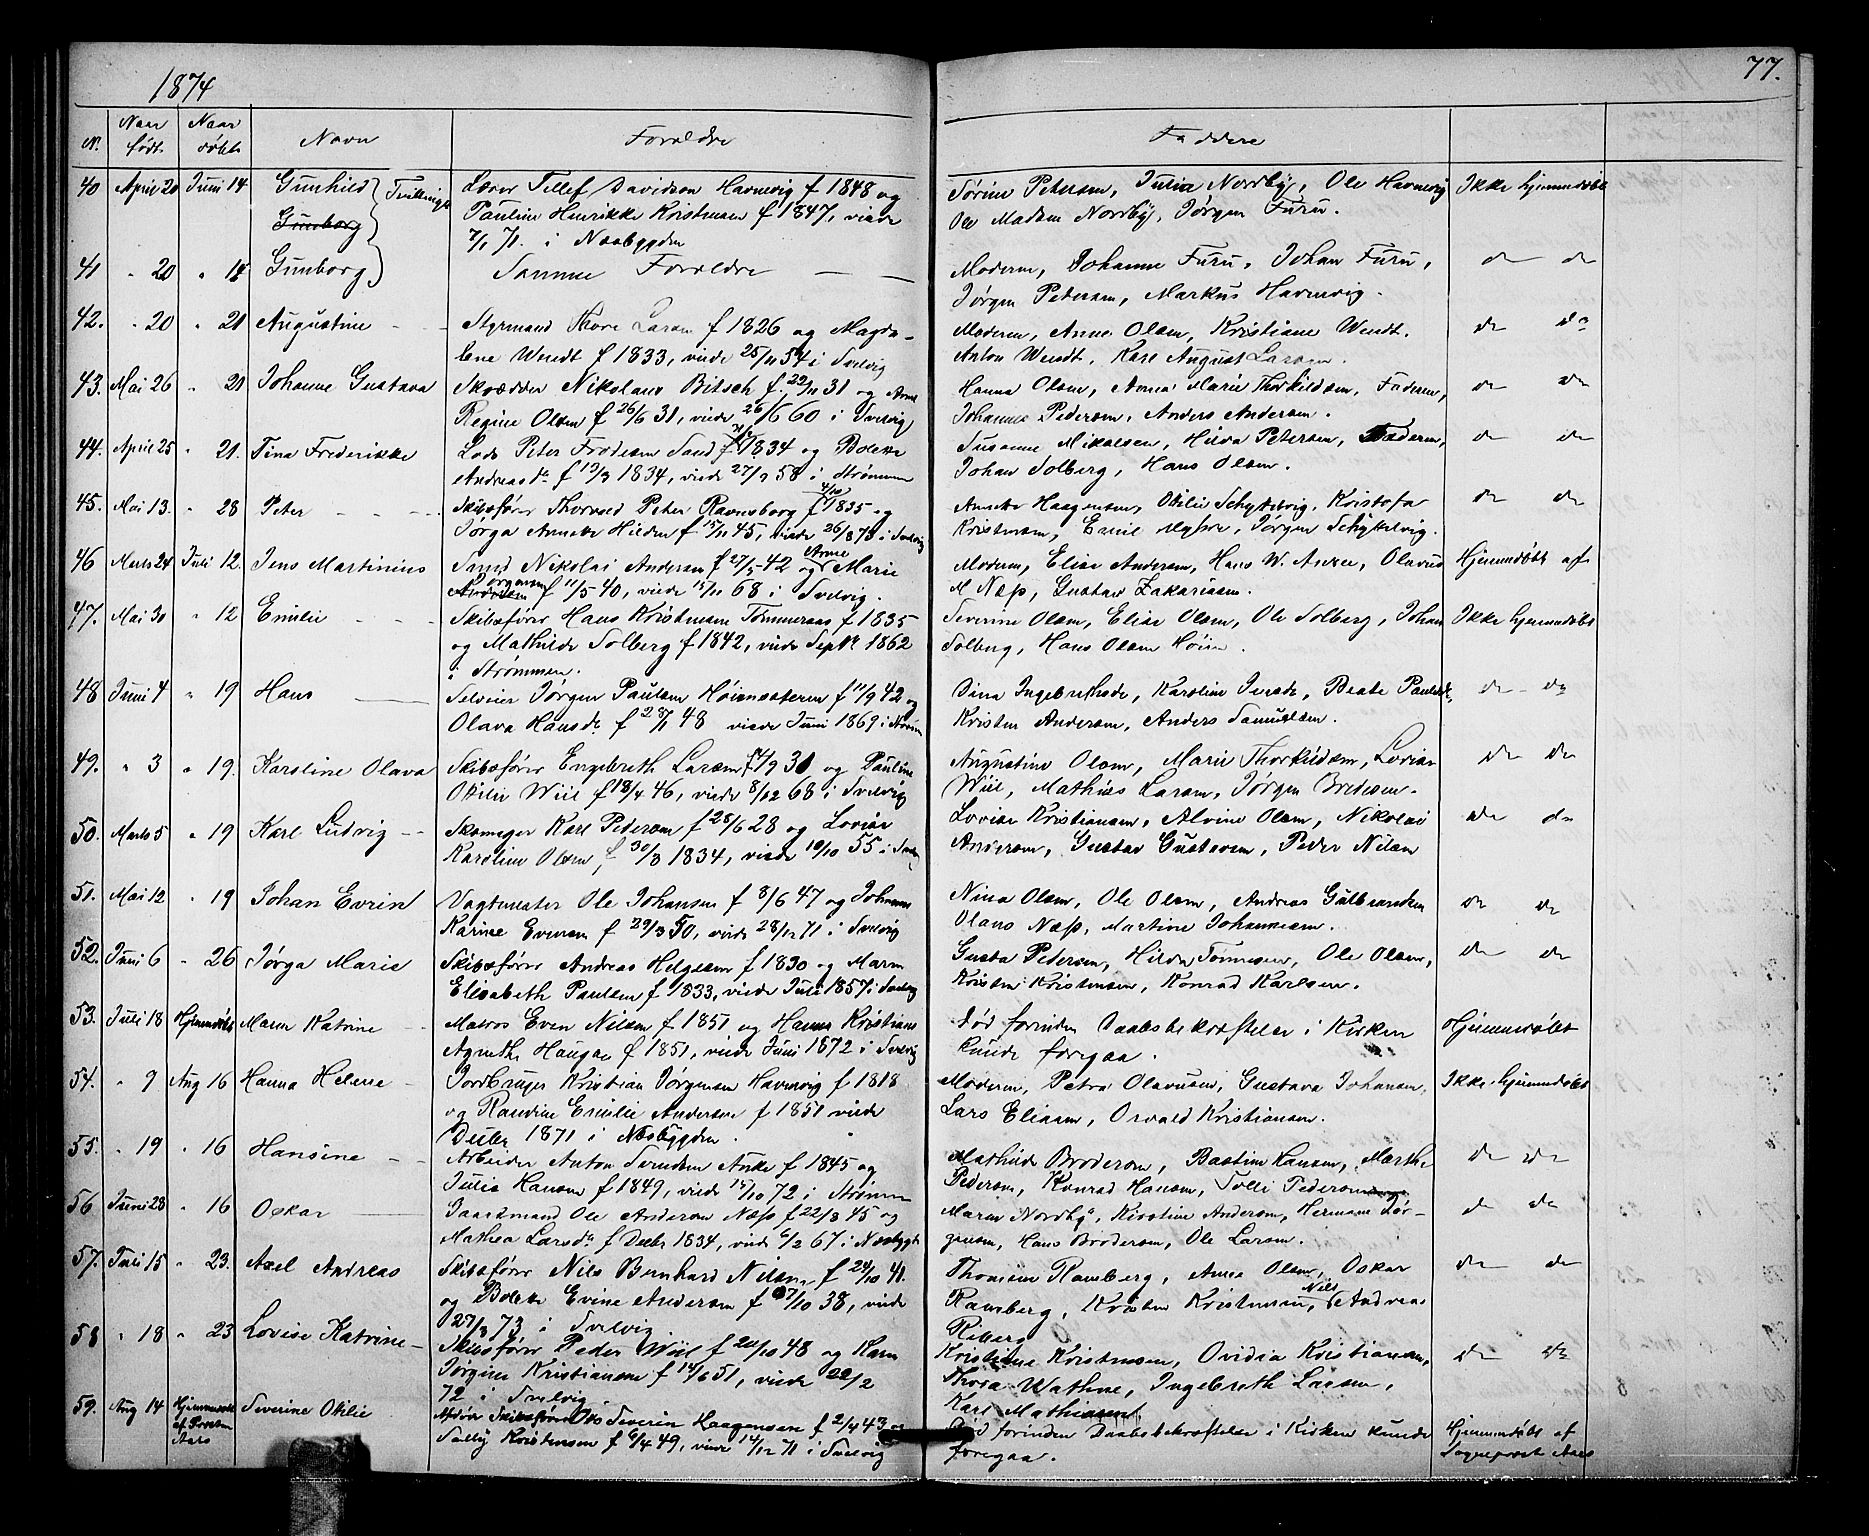 1874
77.
N. Naar født Naar døbt Navn Forældre Faddere
40 April 20 Juni 14 Gunhild Tvillinger Lærer Tellef Davidson Havnevig f 1848 og Sørine Petersen, Julia Nordby, Ole Havnevig Ikke hjemmedøbt
Gunborg Pauline Henrikke Kristensen f 1847, viede Ole Madsen Nordby, Jørgen Furu.
7/1 71. i Næsbygden
41 " 20 " 14 Gunborg Samme Forældre — — Moderen, Johanne Furu, Johan Furu, do do
Jørgen Petersen, Markus Havnevig.
42. " 20 " 21 Augustine - - Styrmand Thore Larsen f 1826 og Magda- Moderen, Anne Olsen, Kristiane Wendt. do do
lene Wendt f 1833, viede 25/11 54 i Svelvig Anton Wendt, Karl August Larsen.
43. Mai 26 " 21 Johanne Gustava Skrædder Nikolaus Bitsch f. 22/11 31 og Anne Hanna Olsen, Anna Marie Thorkildsen, Faderen, do do
Regine Olsen f 26/6 31, viede 26/6 60 i Svelvig Johannes Pedersen, Anders Andersen.
44. April 25 " 21. Tina Frederikke Lods Peter Frodesen Sand f 1834 og Bolette Susanne Mikalsen, Hilda Petersen, Faderen, do do
Andreasdr f 19/3 1834, viede 27/9 58 i Strømmen Johan Solberg, Hans Olsen.
45. Mai 13. " 28 Peter - - - Skibsfører Thorvald Peter Ravnsborg f 4/10 1835 og Annette Haagensen, Otilie Schykkelvig, Kristofa do do
Jørga Annette Hieden f 15/11 45, viede 26/8 73 i Svelvig Kristensen, Emil Myhre, Jørgen Schykkelvig.
46 Marts 24 Juli 12. Jens Martinius Smed Nikolai Andersen f 27/5 42 og Anne Marie Moderen, Elise Andersen, Hans W. Ansee, Olavus Hjemmedøbt af
Jørgensen Andersen f 11/5 40, viede 15/11 68 i Svelvig. M Næss, Gustav Zakariasen.
47. Mai 30 " 12 Emilie - - - Skibsfører Hans Kristensen Tømmeraas f 1835 Severine Olsen, Elise Olsen, Ole Solberg, Johan Ikke hjemmedøbt
og Mathilde Solberg f 1842, viede Septbr 1862 Solberg, Hans Olsen Høien.
i Strømmen.
48 Juni 4 " 19 Hans — Selveier Jørgen Paulsen Høiensæteren f 11/9 42 og Dina Ingebrethsdr, Karoline Iversdr, Beate Paulsdr, do - do
Olava Hansdr f 28/1 48 viede Juni 1869 i Strømm Kristen Andersen, Anders Samuelsen.
49. " 3 " 19. Karoline Olava Skibsfører Engebreth Larsen f 14/9 30 og Pauline Augustine Olsen, Marie Thorkildsen, Lovise do do
Otilie Wiil f 18/4 46, viede 8/12 68 i Svelvig Wiil, Mathias Larsen, Jørgen Bredesen.
50. Marts 5 " 19 Karl Ludvig - - Skomager Karl Pedersen f 28/6 28 og Lovise Lovise Kristiansen, Alvine Olsen, Nikolai do do
Karoline Olsen f 30/3 1834, viede 10/10 55 i Andersen, Gustav Gustavsen, Peder Nilsen
51. Mai 12 " 19 Johan Evrin Vagtmester Ole Johansen f 8/6 47 og Johanne Nina Olsen, Ole Olsen, Andreas Gulbrandsen do do
Karine Eversen f 29/3 50, viede 28/12 71 i Svelvig Olaus Næss, Martine Johannesen.
52. Juni 6 " 26 Jørga Marie Skibsfører Andreas Helgesen f 1830 og Maren Gusta Pedersen, Hilda Tønnesen, Ole Olsen, do do
Elisabeth Paulsen f 1833, viede Juli 1857 i Svelvig Kristen Kristensen, Konrad Karlsen.
53. Juli 18 Hjemmedøbt Maren Katrine - Matros Even Nilsen f 1851 og Hanna Kristians Død forinden Daabsbekræftelse i Kirken Hjemmedøbt
Agnethe Haugan f 1851, viede Juni 1872 i Svelvig kunde foregaa.
54. " 9 Aug 16 Hanna Helene - Jordbruger Kristian Jørgensen Havnevig f 1818 Moderen, Petra Olavusen, Gustava Johansen, Ikke hjemmedøbt
og Randine Emilie Andersen f 1851 viede Lars Eliasen, Osvald Kristiansen.
Decbr 1871 i Næsbygden.
55. " 19 " 16 Hansine - - Arbeider Anton Svendsen Aake f 1845 og Mathilde Brodersen, Bastine Hansen, Marthe do do
Julia Hansen f 1849, viede 15/10 72 i Strømm Pedersen, Konrad Hansen, Tolli Pedersen
56 Juni 28 " 16 Oskar — Saarmand Ole Andersen Næss f 22/8 45 og Maren Nordby, Kirstine Andersen, Hermann Jør- do do
Mathea Larsdr f Decbr 1834, viede 6/2 67 i Næsbygd gensen, Hans Brodersen, Ole Larsen.
57. Juli 15 " 23. Axel Andreas Skibsfører Nils Bernhard Nilsen f 24/10 41. Thomsen Ramberg, Anna Olsen, Oskar do do
og Bolette Evine Andersen f 7/10 38, viede Ramberg, Kristen Kristensen, Nils Andreas
27/3 73 i Svelvig Riberg
58 " 18 " 23 Lovise Katrine - Skibsfører Peder Wiil f 20/10 48 og Karen Kristiane Kristensen, Ovidia Kristiansen, do do
Jørgine Kristiansen f 14/6 51, viede 22/2 Thora Wathne, Ingebreth Larsen,
72 i Svelvig. Karl Mathiesen
59. Aug 14 Hjemmedøbt af Provsten Aars Severine Otilie Afdøde Skibsfører Otto Severin Haagensen f 2/4 43 og Død forinden Daabsbekræftelse i Kirken kunde Hjemmedøbt af
Kristensen f 6/4 49, viede 14/12 71 i Svelvig foregaa. Sogneprest Aars